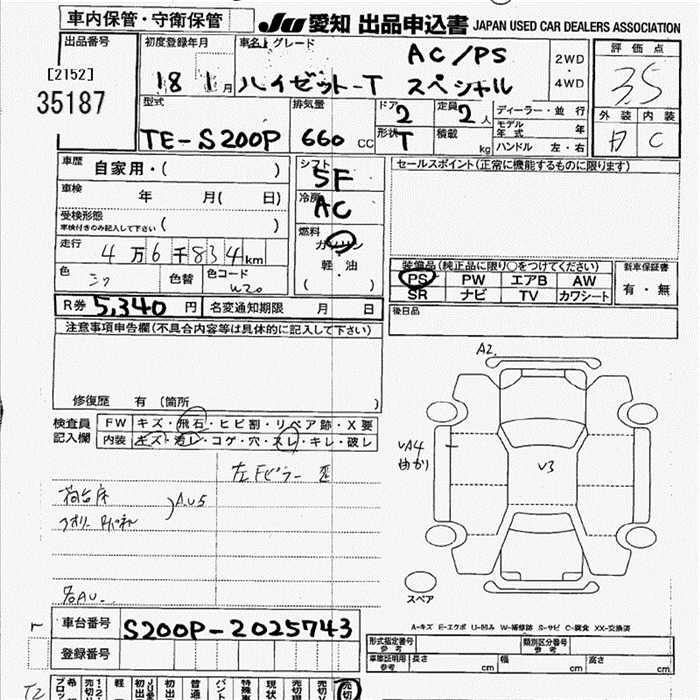 車内保管・守衛保管
JU 愛知 出品申込書 JAPAN USED CAR DEALERS ASSOCIATION
出品番号
[2152]
35187
初度登録年月
18 年 1 月
車名 グレード
AC/PS
ハイゼット-T スペシャル
2WD
・
4WD
評価点
3.5
外装 内装
C
型式
TE-S200P
排気量
660 CC
ドア
2
形状
T
定員
2 人
積載
kg
ディーラー・並行
モデル年式 年
ハンドル 左・右
車歴
自家用・( )
車検
年 月( 日)
受検形態
車検付きのみ記入して下さい ( )
走行
4万6千834km
色
シロ
色替
色コード
W20
R券 5,340 円
名変通知期限 月 日
シフト
5F
冷房
AC
燃料
ガソリン
・
軽油
( )
セールスポイント(正常に機能するものに限ります)
装備品(純正品に限り○をつけてください)
PS PW エアB AW
SR ナビ TV カワシート
新車保証書
有・無
後日品
注意事項申告欄(不具合内容等は具体的に記入して下さい)
修復歴 有 (箇所 )
検査員
記入欄
FW キズ・飛石・ヒビ割・リペア跡・X要
内装 キズ・汚レ・コゲ・穴・スレ・キレ・破レ
左Fピラー
荷台床
アオリ
AU5
A2
UA4
曲がり
U3
スペア
A-キズ E-エクボ U-凹み W-補修跡 S-サビ C-腐食 XX-交換済
車台番号 S200P-2025743
登録番号
形式指定番号
参考
類別区分番号
参考
車庫証明用
参考
長さ cm 幅 cm 高さ cm
T2